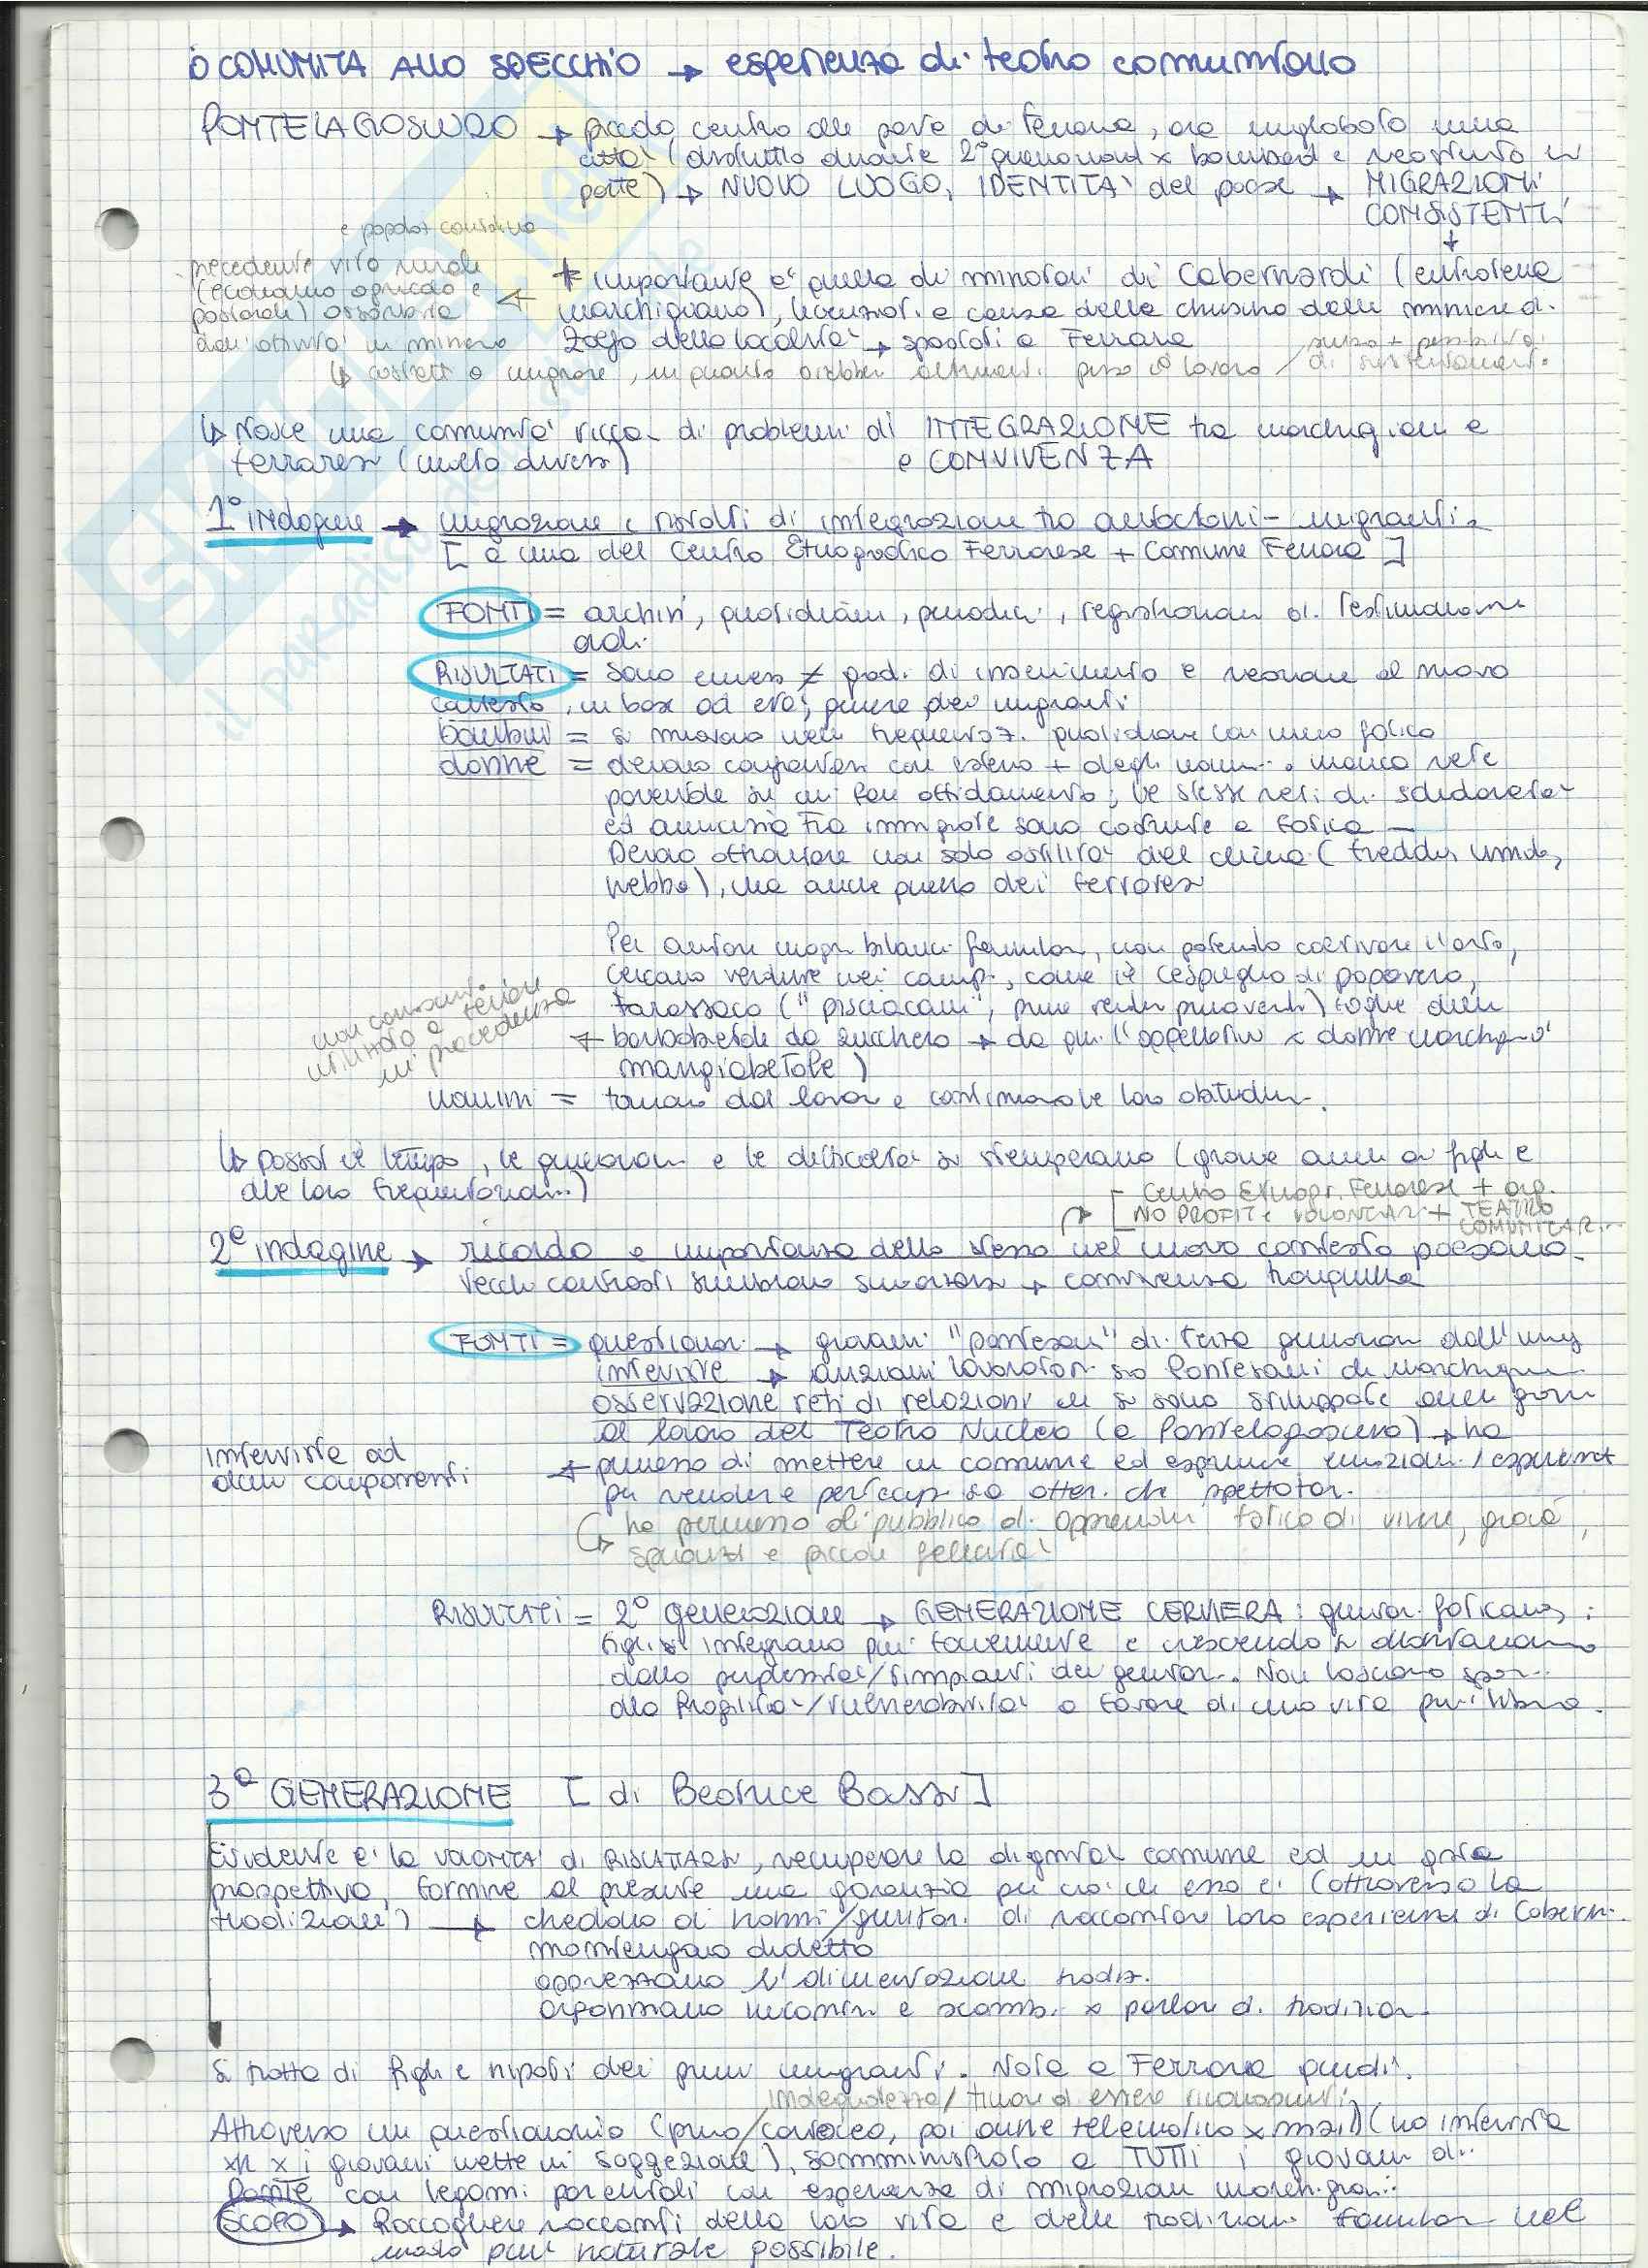 COMUNITÀ ALLO SPECCHIO → esperienza di teatro comunitario
PONTELAGOSCURO → piccolo centro alle porte di Ferrara, ora inglobato nella
città (distrutto durante 2° guerra mond x bombard e ricostruito in
parte) → NUOVO LUOGO, IDENTITÀ del paese → MIGRAZIONI
CONSISTENTI
↓
e popolaz contadina
precedente vita rurale
(economia agricola e
pastorale) assorbita
dall'attività in miniera
* importante è quella di minatori di Cabernardi (entroterra
marchigiano), licenziati a causa della chiusura delle miniere di
zolfo della località → spostati a Ferrara
↳ costretti a migrare, in quanto avrebbero altrimenti perso il lavoro /
di sostentamento
↳ Nasce una comunità ricca di problemi di INTEGRAZIONE tra marchigiani e
ferraresi (molto diversi) e CONVIVENZA
1° INDAGINE → migrazione e risvolti di integrazione tra autoctoni - migranti
[ a cura del Centro Etnografico Ferrarese + Comune Ferrara ]
FONTI = archivi, quotidiani, periodici, registrazioni di testimonianze
orali
RISULTATI = sono emersi ≠ gradi di inserimento e reazione al nuovo
contesto, in base ad età, genere dei migranti
bambini = si muovono nelle frequentaz. quotidiane con meno fatica
donne = devono confrontarsi con esterno + degli uomini. manca rete
parentale su cui fare affidamento; le stesse reti di solidarietà
ed amicizia tra immigrate sono costruite a fatica -
Devono affrontare non solo ostilità del clima (freddo, umido,
nebbia), ma anche quella dei ferraresi
Per aiutare magri bilanci familiari, non potendo coltivare l'orto,
cercano verdure nei campi, come il cespuglio di papavero,
tarassaco ("pisciacani", foglie delle
barbabietole da zucchero → da qui l'appellativo x donne marchig. di
mangiabietole)
non consumi
in precedenza
uomini = tornano dal lavoro e continuano le loro abitudini.
↳ Passa il tempo, le generazioni e le difficoltà si stemperano (grazie anche ai figli e
alle loro frequentazioni)
[ Centro Etnogr. Ferrarese + org.
NO PROFIT e VOLONTARI + TEATRO
COMUNITAR.
2° indagine → ricordo e importanza dello stesso nel nuovo contesto paesano
vecchi contrasti sembrano superati → convivenza tranquilla
FONTI = questionari → giovani "pontesani" di terza generazione dall'immig
interviste → anziani lavoratori sia Pontesani che Marchigiani
osservazione reti di relazioni che si sono sviluppate anche grazie
al lavoro del Teatro Nucleo (a Pontelagoscuro) → ha
permesso di mettere in comune ed esprimere emozioni / esperienze
per rendere partecipi sia attori che spettatori.
interviste ad
alcuni componenti
↳ ha permesso al pubblico di apprendere fatica di vivere, gioia,
speranza e piccole felicità
RISULTATI = 2° generazione → GENERAZIONE CERNIERA: genitori faticano;
figli si integrano più facilmente e crescendo si allontanano
dalla / rimpianti dei genitori. Non lasciano spazio
alla fragilità / vulnerabilità a favore di una vita più libera.
3ª GENERAZIONE [ di Beatrice Bassi ]
Evidente è la volontà di RISCATTARSI, recuperare la dignità comune ed in
prospettiva, fornire al presente una garanzia per ciò che esso è (attraverso la
tradizione) → chiedono ai nonni/genitori di raccontare loro esperienza di Cabern.
mantengono dialetto
apprezzano l'alimentazione tradiz.
organizzano incontri e scambi x parlare di tradizioni.
Si tratta di figli e nipoti dei primi migranti. Nate a Ferrara quindi.
inadeguatezza / timore di essere riconosciuti
Attraverso un questionario (prima cartaceo, poi anche telematico x mail) (no intervista
xk x i giovani mette in soggezione), somministrato a TUTTI i giovani di
Ponte con legami parentali con esperienza di migrazione marchigiana:
SCOPO → Raccogliere racconti della loro vita e delle tradizioni familiari nel
modo più naturale possibile.